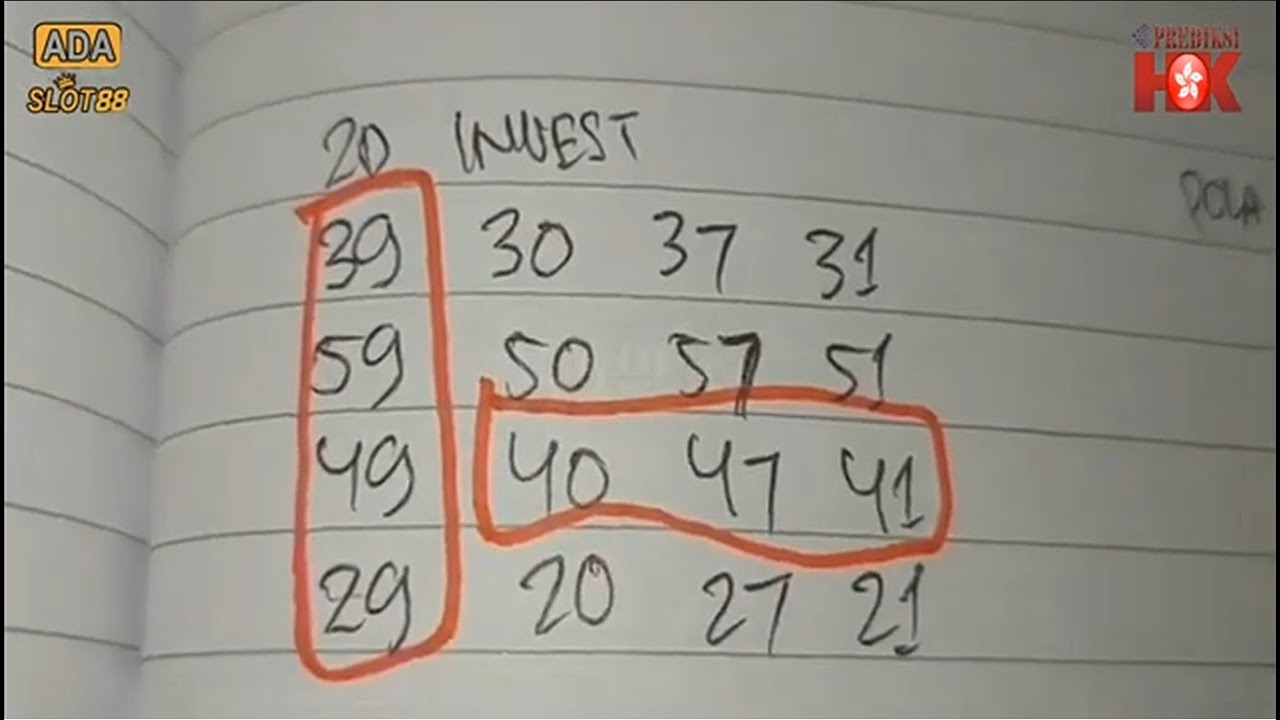 ADA
SLOT88
PREDIKSI
HK
20 INVEST
POLA
39 30 37 31
59 50 57 51
49 40 47 41
29 20 27 21